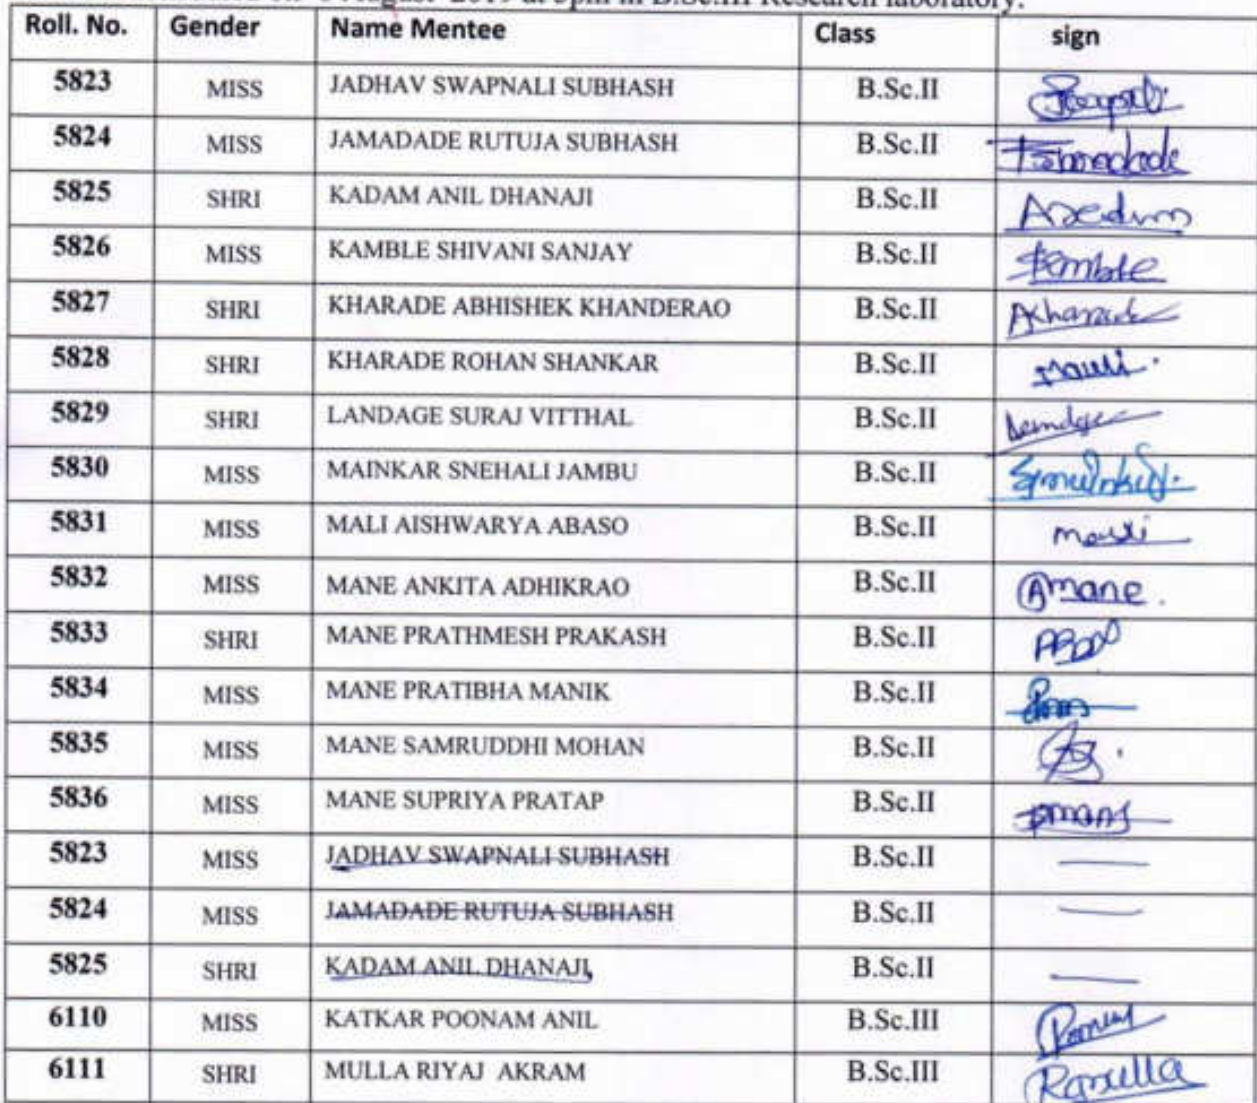 August 2019 at 3pm in B.Sc.III Research laboratory.
Roll. No. Gender Name Mentee Class sign
5823 MISS JADHAV SWAPNALI SUBHASH B.Sc.II
5824 MISS JAMADADE RUTUJA SUBHASH B.Sc.II
5825 SHRI KADAM ANIL DHANAJI B.Sc.II
5826 MISS KAMBLE SHIVANI SANJAY B.Sc.II Kamble
5827 SHRI KHARADE ABHISHEK KHANDERAO B.Sc.II
5828 SHRI KHARADE ROHAN SHANKAR B.Sc.II
5829 SHRI LANDAGE SURAJ VITTHAL B.Sc.II
5830 MISS MAINKAR SNEHALI JAMBU B.Sc.II
5831 MISS MALI AISHWARYA ABASO B.Sc.II
5832 MISS MANE ANKITA ADHIKRAO B.Sc.II Amane.
5833 SHRI MANE PRATHMESH PRAKASH B.Sc.II
5834 MISS MANE PRATIBHA MANIK B.Sc.II
5835 MISS MANE SAMRUDDHI MOHAN B.Sc.II
5836 MISS MANE SUPRIYA PRATAP B.Sc.II
5823 MISS JADHAV SWAPNALI SUBHASH B.Sc.II —
5824 MISS JAMADADE RUTUJA SUBHASH B.Sc.II —
5825 SHRI KADAM ANIL DHANAJI B.Sc.II —
6110 MISS KATKAR POONAM ANIL B.Sc.III
6111 SHRI MULLA RIYAJ AKRAM B.Sc.III